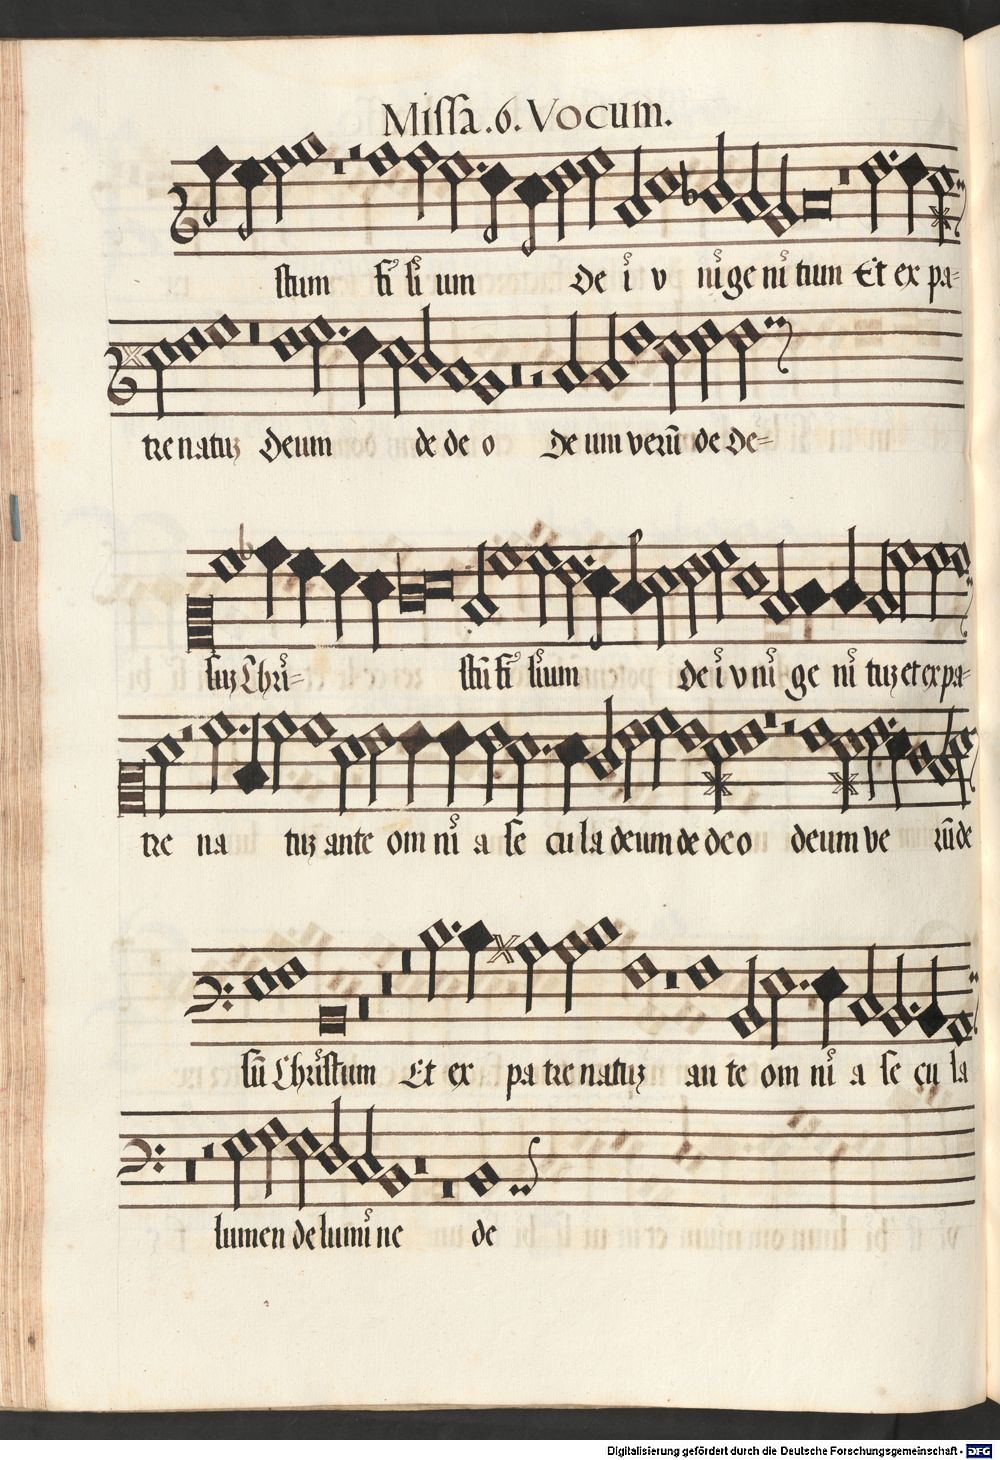 Missa .6. Vocum.
stum fi li um De i v ni ge ni tum Et ex pa=
tre natuz Deum de de o De um verũ de De=
suz Chri= stũ fi lium De i v ni ge ni tuz et ex pa=
tre na tuz ante om ni a se cu la deum de deo deum ve rũ de
sũ Christum Et ex pa tre natuz an te om ni a se cu la
lumen de lumi ne de
Digitalisierung gefördert durch die Deutsche Forschungsgemeinschaft - DFG